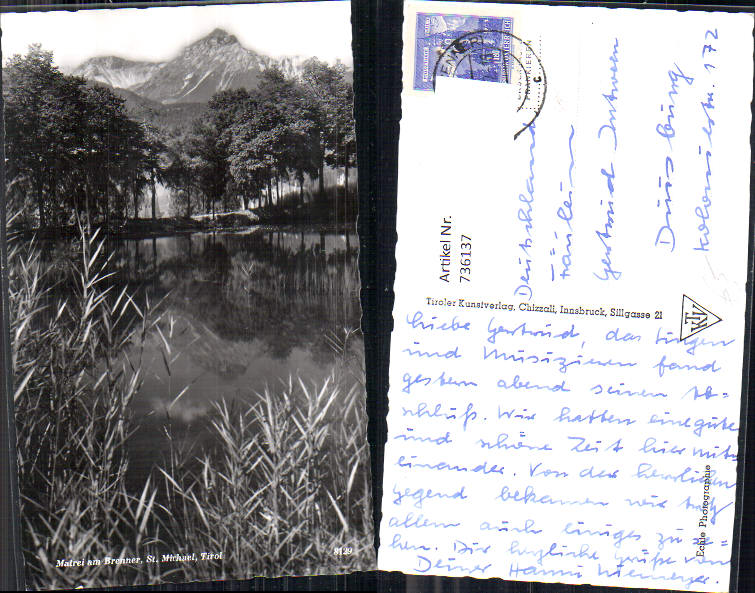 Matrei am Brenner, St. Michael, Tirol
8129
Artikel Nr.
736137
Deutschland
Fräulein
Gertrud
Duisburg
Koloniestr. 172
Tiroler Kunstverlag, Chizzali, Innsbruck, Sillgasse 21
TKV
Echte Photographie
Liebe Gertrud, das Singen
und Musizieren fand
gestern abend seinen Ab=
schluß. Wir hatten eine gute
und schöne Zeit hier mit=
einander. Von der herrlichen
Gegend bekamen wir trotz
allem auch einiges zu se=
hen. Dir herzliche Grüße von
Deiner Hanni Niemeyer.